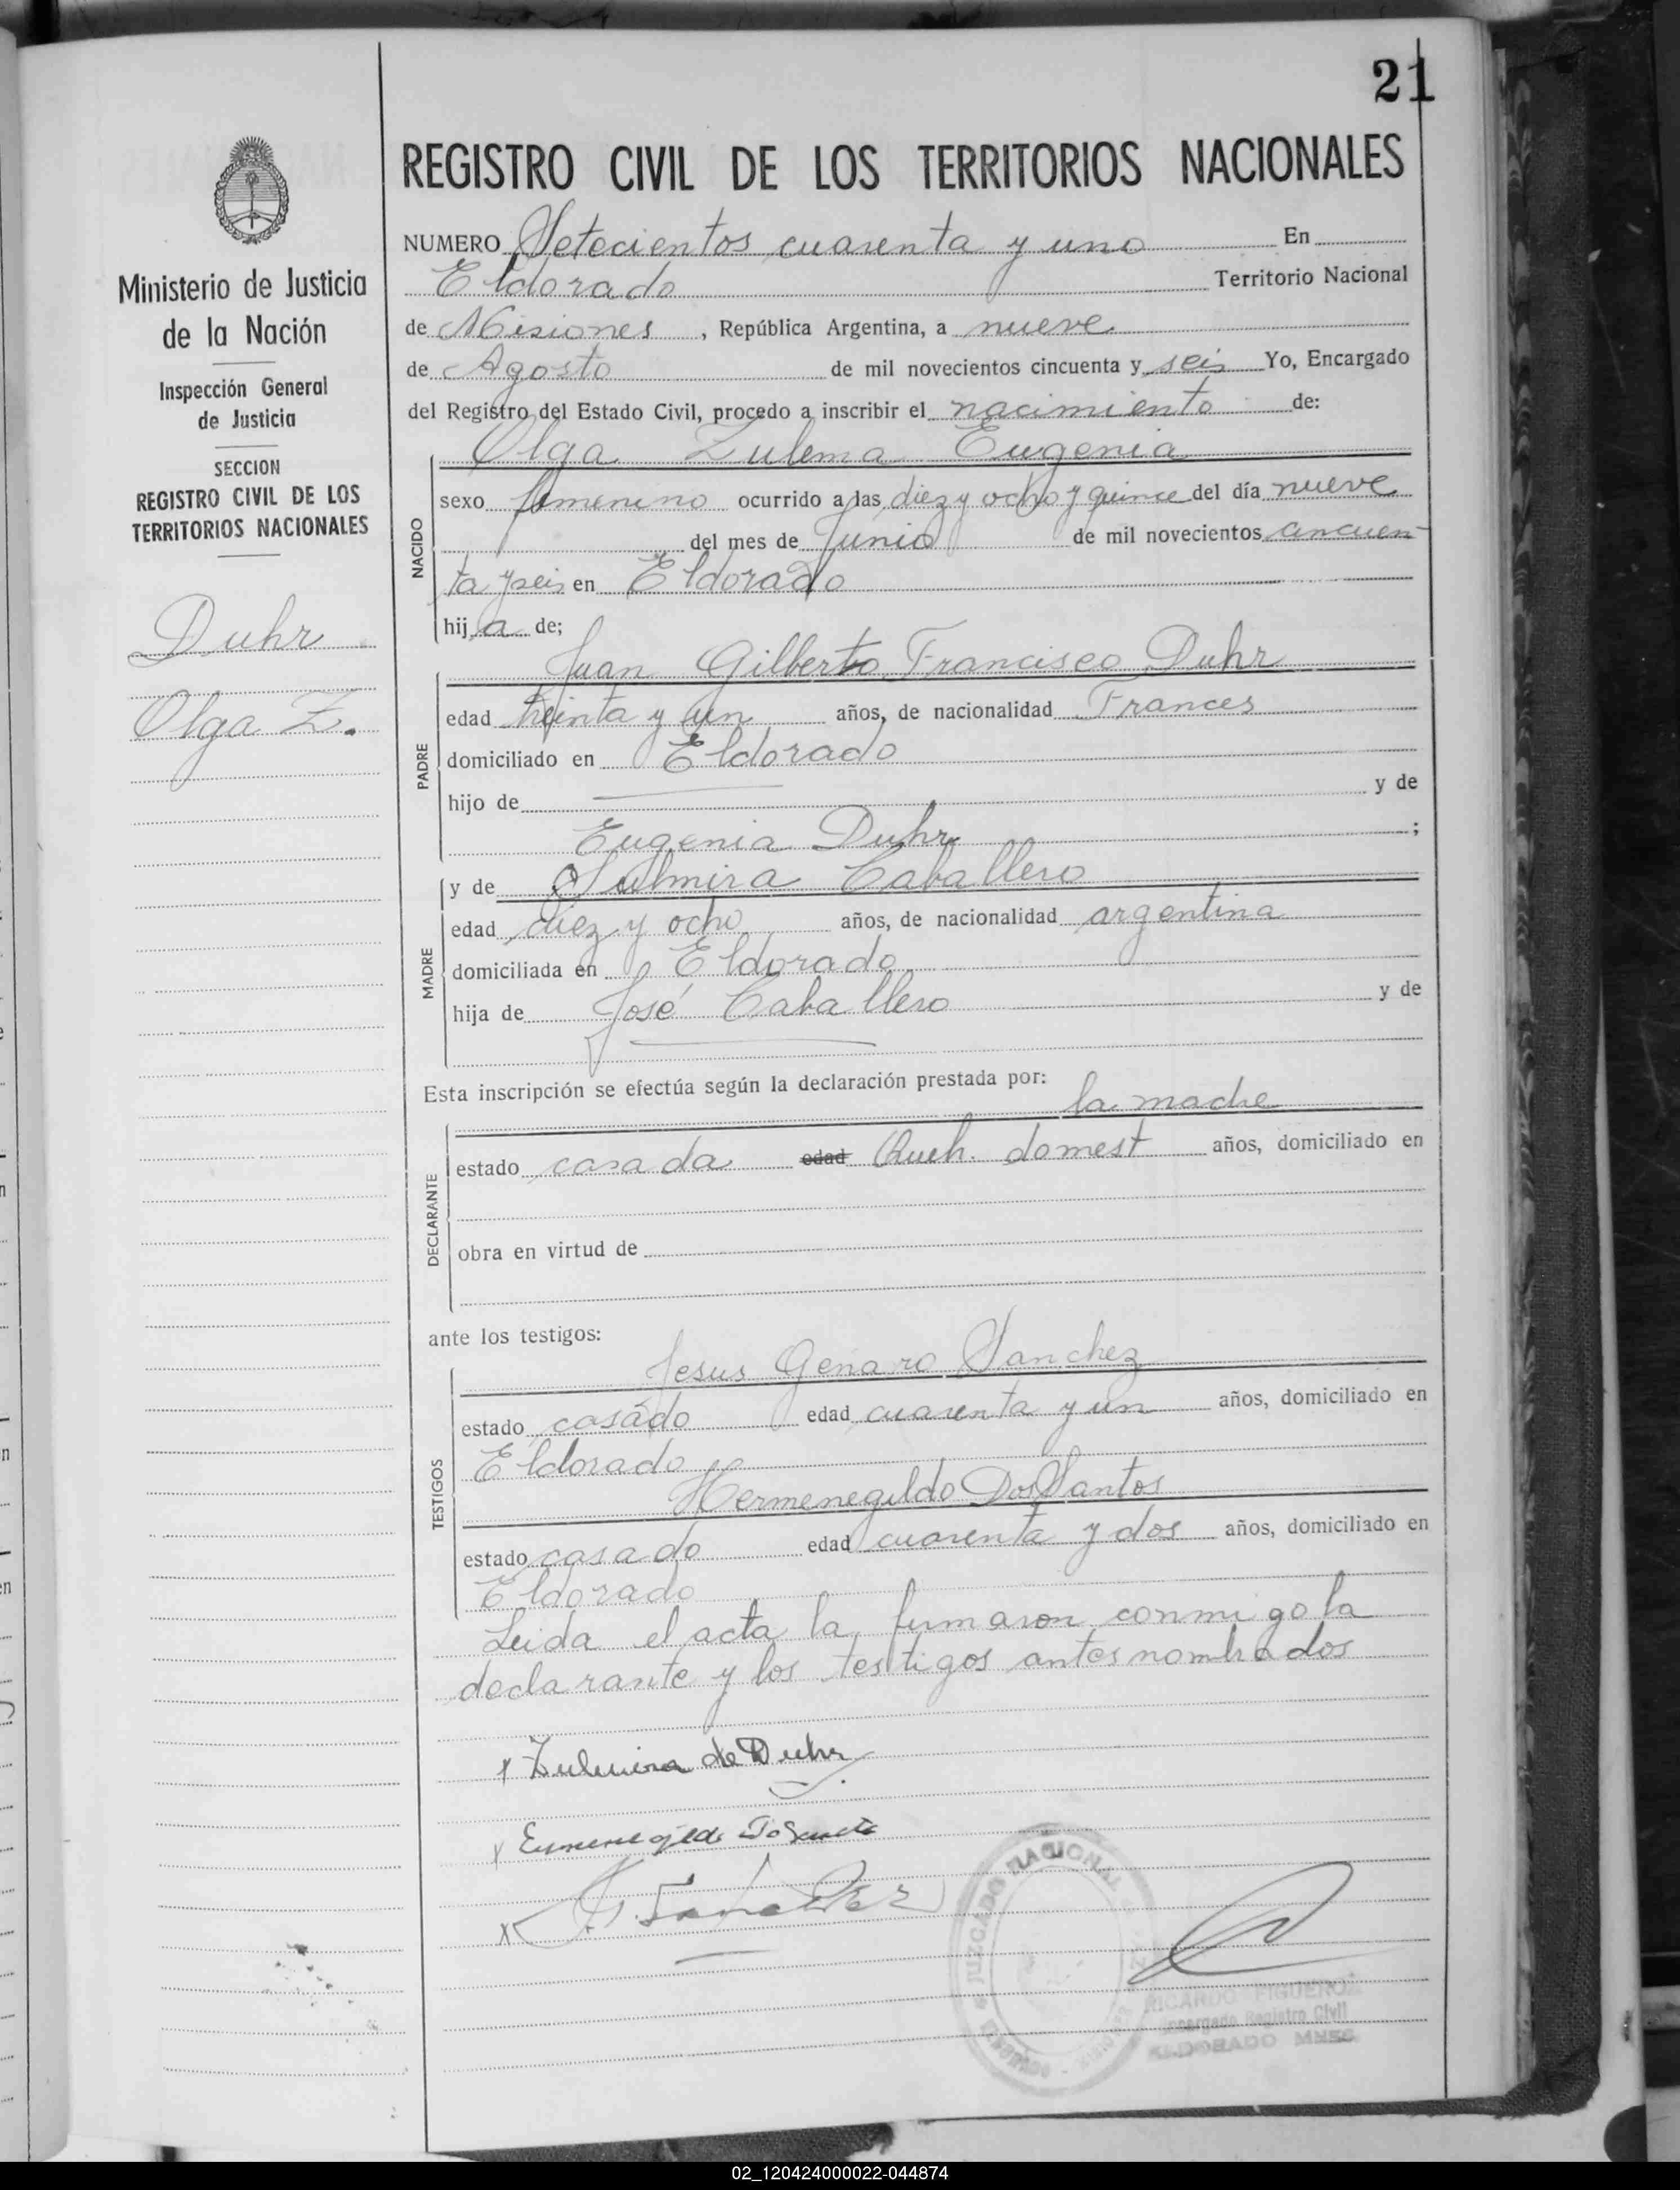 21
REGISTRO CIVIL DE LOS TERRITORIOS NACIONALES
Ministerio de Justicia
de la Nación
Inspección General
de Justicia
SECCION
REGISTRO CIVIL DE LOS
TERRITORIOS NACIONALES
Duhr
Olga Z.
NUMERO Setecientos cuarenta y uno En
Eldorado Territorio Nacional
de Misiones, República Argentina, a nueve
de Agosto de mil novecientos cincuenta y seis Yo, Encargado
del Registro del Estado Civil, procedo a inscribir el nacimiento de:
Olga Zulema Eugenia
NACIDO
sexo femenino ocurrido a las diez y ocho y quince del día nueve
del mes de Junio de mil novecientos cincuen
ta y seis en Eldorado
hija de;
Juan Gilberto Francisco Duhr
PADRE
edad treinta y un años, de nacionalidad Frances
domiciliado en Eldorado
hijo de y de
Eugenia Duhr ;
MADRE
y de Sulmira Caballero
edad diez y ocho años, de nacionalidad argentina
domiciliada en Eldorado
hija de José Caballero y de
Esta inscripción se efectúa según la declaración prestada por:
la madre
DECLARANTE
estado casada edad Queh. domest años, domiciliado en
obra en virtud de
ante los testigos:
Jesus Genaro Sanchez
TESTIGOS
estado casado edad cuarenta y un años, domiciliado en
Eldorado
Hermenegildo Dos Santos
estado casado edad cuarenta y dos años, domiciliado en
Eldorado
Leida el acta la firmaron conmigo la
declarante y los testigos antes nombrados
x Zulmira de Duhr
x
x J. Sanchez
JUZGADO NACIONAL
RICARDO FIGUERO
Encargado Registro Civil
ELDORADO MNES.
02_120424000022-044874